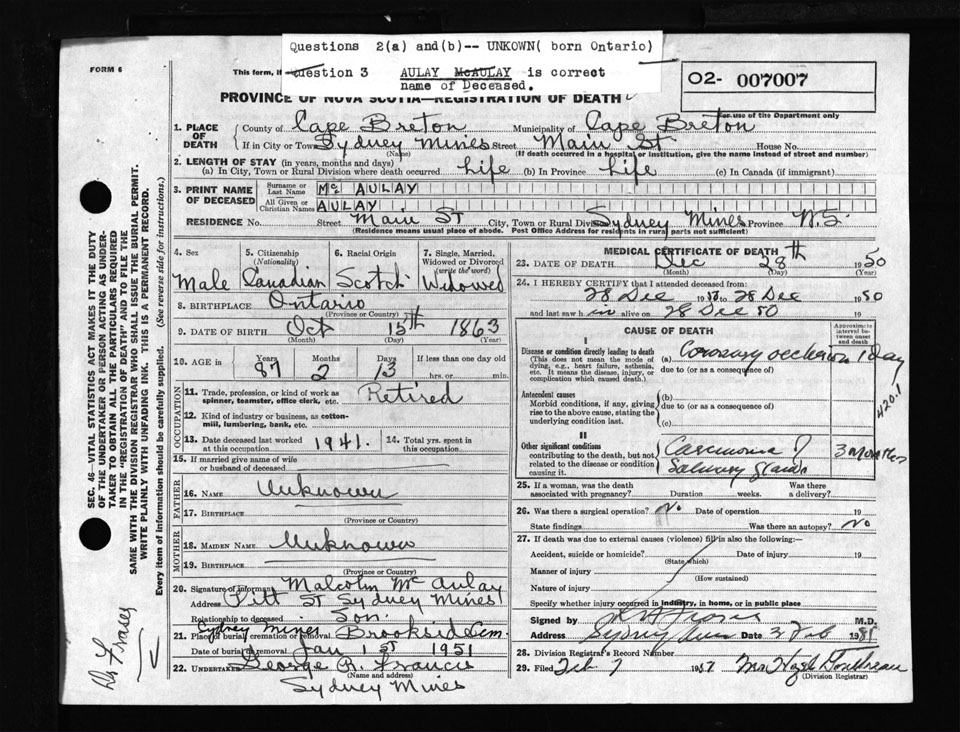 Questions 2(a) and(b)-- UNKOWN( born Ontario)
question 3 AULAY McAULAY is correct
name of Deceased.
FORM 6
This form, if
O2- 007007
For use of the Department only
PROVINCE OF NOVA SCOTIA—REGISTRATION OF DEATH
1. PLACE OF DEATH
County of Cape Breton Municipality of Cape Breton
If in City or Town Sydney Mines Street Main St House No.
(Name) (If death occurred in a hospital or institution, give the name instead of street and number)
2. LENGTH OF STAY (in years, months and days)
(a) In City, Town or Rural Division where death occurred Life (b) In Province Life (c) In Canada (if immigrant)
3. PRINT NAME OF DECEASED
Surname or Last Name Mc AULAY
All Given or Christian Names AULAY
RESIDENCE No. Street Main ST City, Town or Rural Division Sydney Mines Province N.S.
(Residence means usual place of abode. Post Office Address for residents in rural parts not sufficient)
4. Sex Male
5. Citizenship (Nationality) Canadian
6. Racial Origin Scotch
7. Single, Married, Widowed or Divorced (write the word) Widowed
8. BIRTHPLACE Ontario
(Province or Country)
9. DATE OF BIRTH Oct 15th 1863
(Month) (Day) (Year)
10. AGE IN Years 87 Months 2 Days 13 If less than one day old hrs. or min.
OCCUPATION
11. Trade, profession, or kind of work as spinner, teamster, office clerk, etc. Retired
12. Kind of industry or business, as cotton-mill, lumbering, bank, etc.
13. Date deceased last worked at this occupation 1941. 14. Total yrs. spent in this occupation
15. If married give name of wife or husband of deceased
FATHER
16. NAME Unknown
17. BIRTHPLACE
(Province or Country)
MOTHER
18. MAIDEN NAME Unknown
19. BIRTHPLACE
(Province or Country)
20. Signature of informant Malcolm McAulay
Address Pitt ST Sydney Mines
Relationship to deceased Son.
21. Place of burial cremation or removal Sydney Mines Brookside Cem.
Date of burial or removal Jan 1st 1951
22. UNDERTAKER George R. Francis
(Name and address)
Sydney Mines
MEDICAL CERTIFICATE OF DEATH
23. DATE OF DEATH Dec 28th 1950
(Month) (Day) (Year)
24. I HEREBY CERTIFY that I attended deceased from:
28 Dec 1950 to 28 Dec 1950
and last saw him alive on 28 Dec 50 19
CAUSE OF DEATH
Approximate interval between onset and death
I
Disease or condition directly leading to death (a) Coronary occlusion 1 day
(This does not mean the mode of dying, e.g., heart failure, asthenia, etc. It means the disease, injury, or complication which caused death.)
due to (or as a consequence of)
Antecedent causes
Morbid conditions, if any, giving rise to the above cause, stating the underlying condition last.
(b)
due to (or as a consequence of)
(c)
420.1
II
Other significant conditions contributing to the death, but not related to the disease or condition causing it.
Carcinoma ? Salivary gland 3 months
25. If a woman, was the death associated with pregnancy? Duration weeks. Was there a delivery?
26. Was there a surgical operation? No Date of operation 19
State findings Was there an autopsy? No
27. If death was due to external causes (violence) fill in also the following:—
Accident, suicide or homicide? Date of injury 19
(State which)
Manner of injury
(How sustained)
Nature of injury
Specify whether injury occurred in industry, in home, or in public place
Signed by M.D.
Address Sydney Mines Date 3 Feb 1951
28. Division Registrar's Record Number
29. Filed Feb 7 1951 Mrs Hugh
(Division Registrar)
SEC. 46—VITAL STATISTICS ACT MAKES IT THE DUTY
OF THE UNDERTAKER OR PERSON ACTING AS UNDER-
TAKER TO OBTAIN ALL THE PARTICULARS REQUIRED
IN THE "REGISTRATION OF DEATH" AND TO FILE THE
SAME WITH THE DIVISION REGISTRAR WHO SHALL ISSUE THE BURIAL PERMIT.
WRITE PLAINLY WITH UNFADING INK. THIS IS A PERMANENT RECORD.
Every item of information should be carefully supplied. (See reverse side for instructions.)
Dr L Fraser